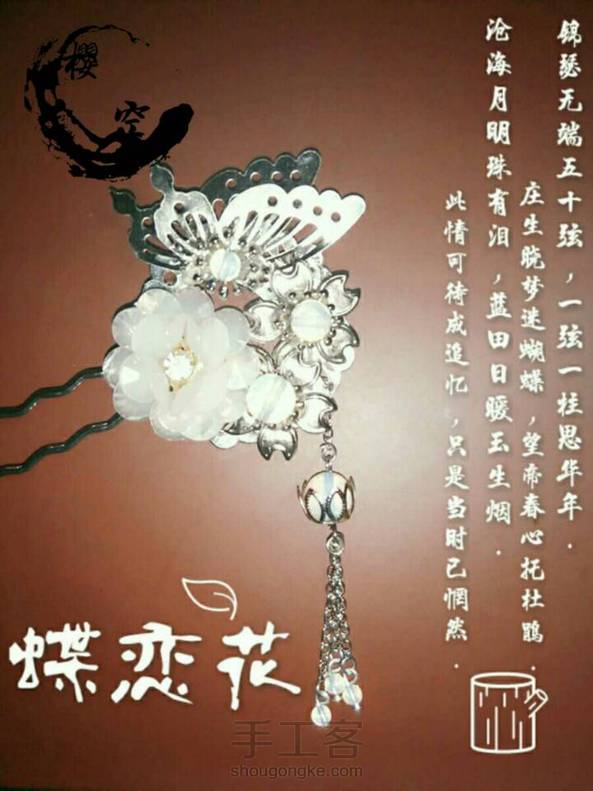 樱
空
锦瑟无端五十弦，一弦一柱思华年．
庄生晓梦迷蝴蝶，望帝春心托杜鹃．
沧海月明珠有泪，蓝田日暖玉生烟．
此情可待成追忆，只是当时已惘然．
蝶恋花
手工客
shougongke.com